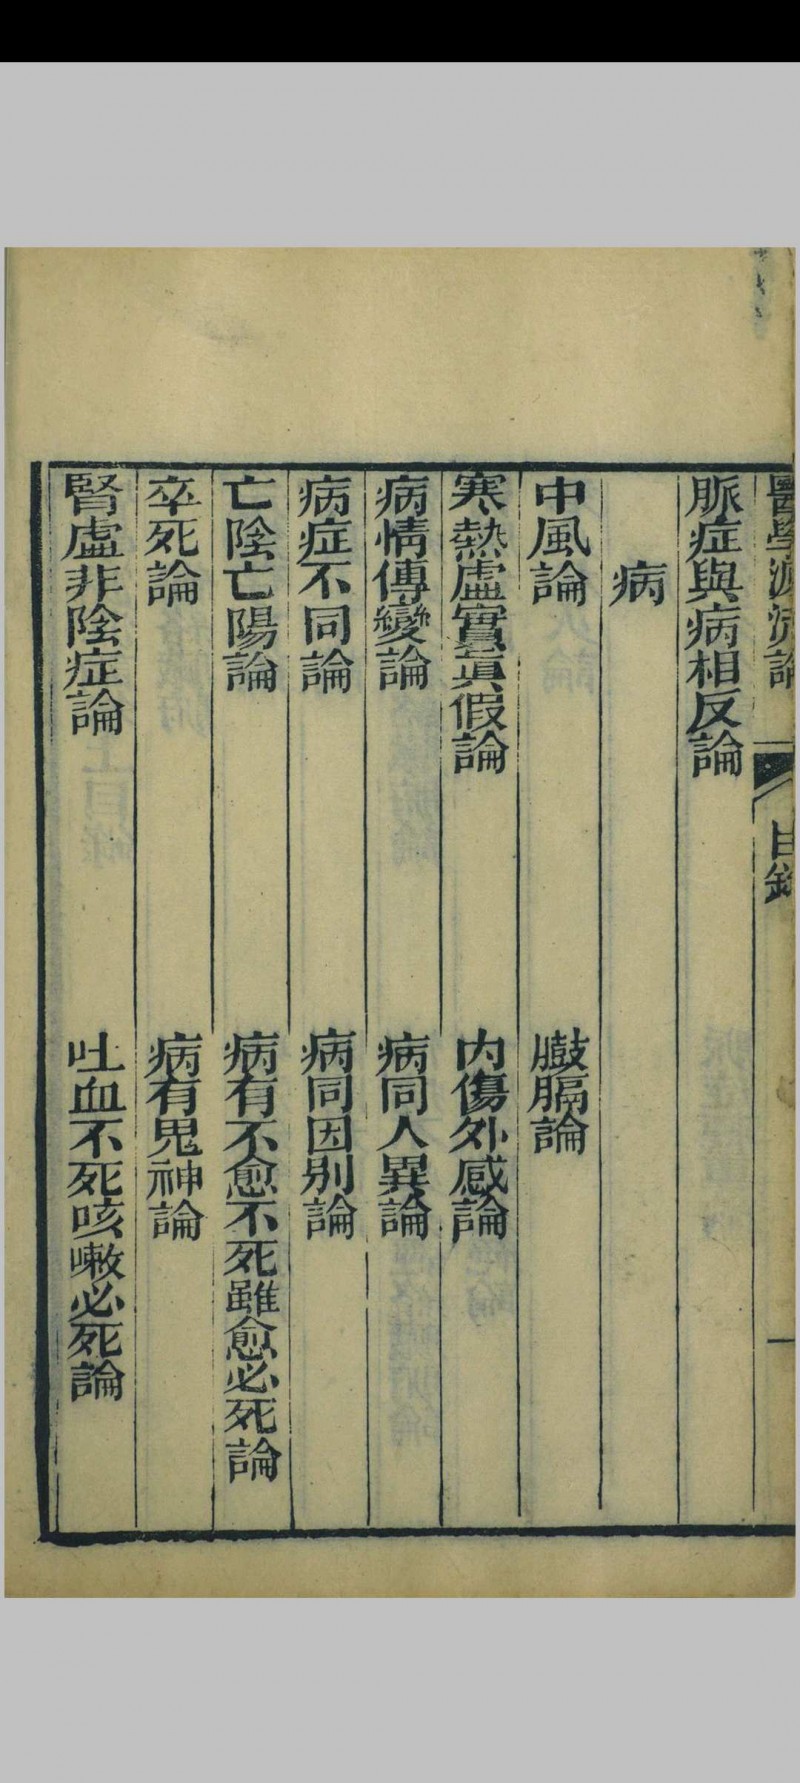 醫學源流論 目錄 一
脈症與病相反論
病
中風論 臌膈論
寒熱虛實眞假論 內傷外感論
病情傳變論 病同人異論
病症不同論 病同因別論
亡陰亡陽論 病有不愈不死雖愈必死論
卒死論 病有鬼神論
腎虛非陰症論 吐血不死咳嗽必死論